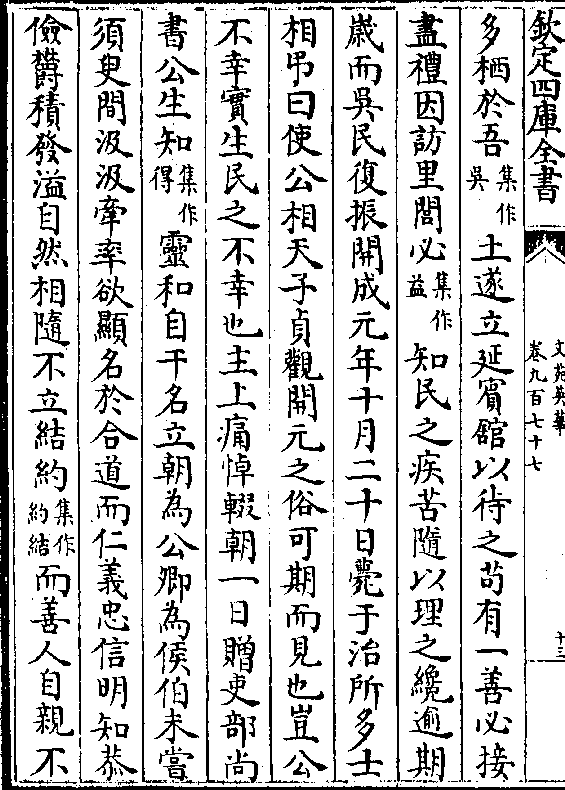 欽定四庫全書
文苑英華
卷九百七十七
十三
多栖於吾集作吳土遂立延賓舘以待之苟有一善必接
盡禮因訪里閭必集作益知民之疾苦隨以理之纔逾期
歲而吳民復振開成元年十月二十日薨于治所多士
相弔曰使公相天子貞觀開元之俗可期而見也豈公
不幸實生民之不幸也主上痛悼輟朝一日贈吏部尚
書公生知集作得靈和自干名立朝為公卿為侯伯未嘗
須臾間汲汲牽率欲顯名於合道而仁義忠信明知恭
儉欝積發溢自然相隨不立結約集作約結而善人自親不